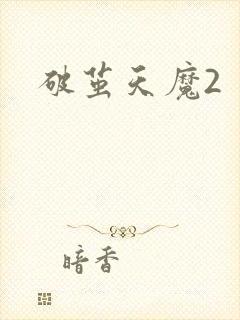 破茧天魔2
暗香